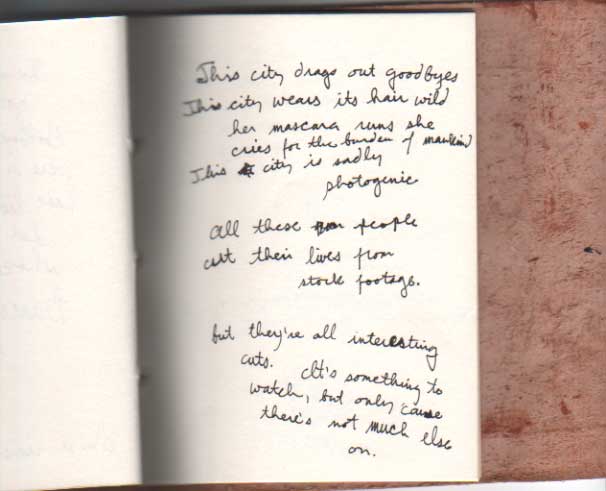 This city drags out goodbyes
This city wears its hair wild
her mascara runs she
cries for the burden of mankind
This city is sadly
photogenic
all these people
cut their lives from
stock footage.
but they're all interesting
cuts. It's something to
watch, but only 'cause
there's not much else
on.